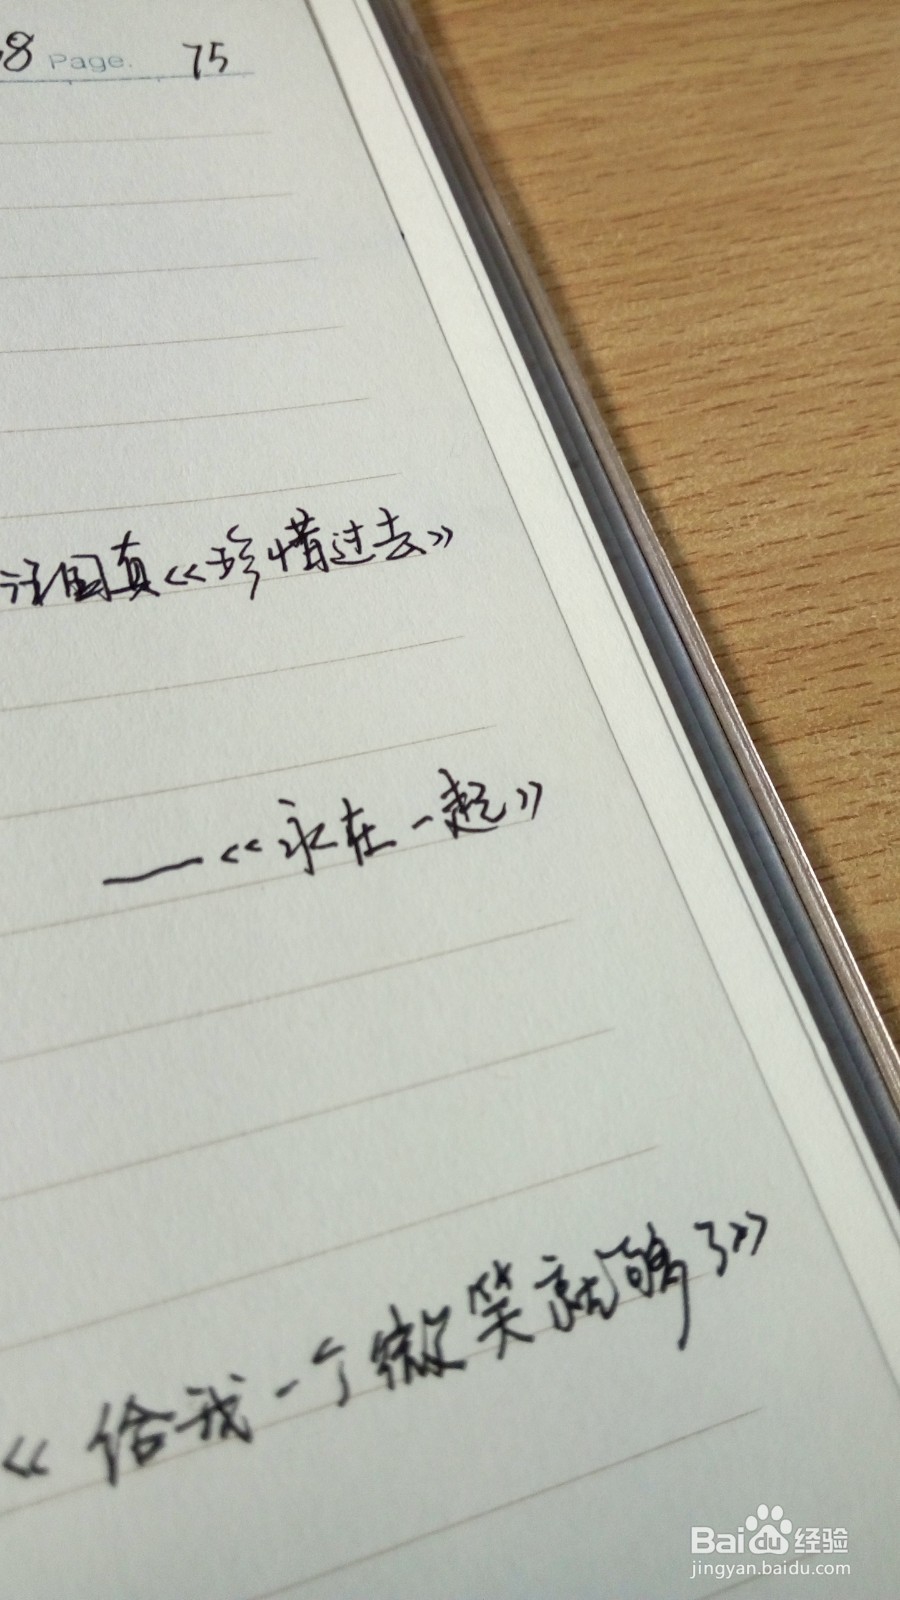 8 Page. 75
汪国真《珍惜过去》
——《永在一起》
《给我一个微笑就够了》
Baidu经验
jingyan.baidu.com